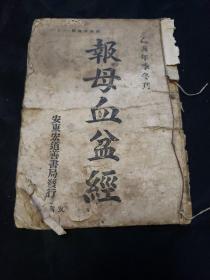 年季冬刊
報母血盆經
安東宏道善書局發行